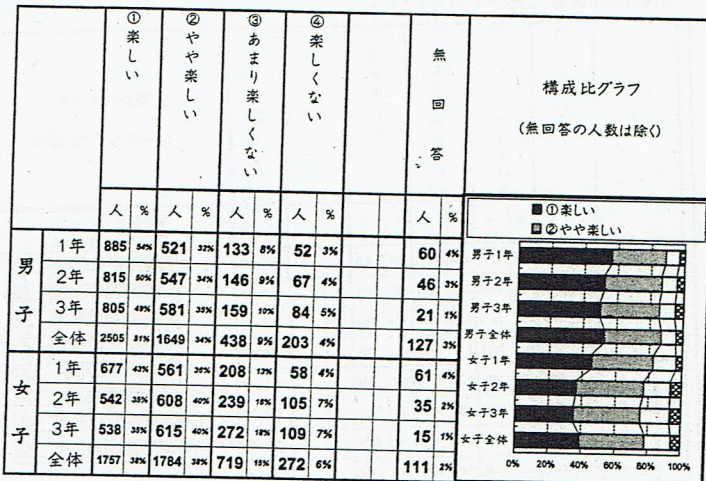 ①楽しい ②やや楽しい ③あまり楽しくない ④楽しくない 無回答 構成比グラフ
(無回答の人数は除く)
人 % 人 % 人 % 人 % 人 %
①楽しい
②やや楽しい
男子
1年 885 54% 521 32% 133 8% 52 3% 60 4%
2年 815 50% 547 34% 146 9% 67 4% 46 3%
3年 805 49% 581 35% 159 10% 84 5% 21 1%
全体 2505 51% 1649 34% 438 9% 203 4% 127 3%
女子
1年 677 43% 561 36% 208 13% 58 4% 61 4%
2年 542 35% 608 40% 239 16% 105 7% 35 2%
3年 538 35% 615 40% 272 18% 109 7% 15 1%
全体 1757 38% 1784 38% 719 15% 272 6% 111 2%
男子1年
男子2年
男子3年
男子全体
女子1年
女子2年
女子3年
女子全体
0% 20% 40% 60% 80% 100%